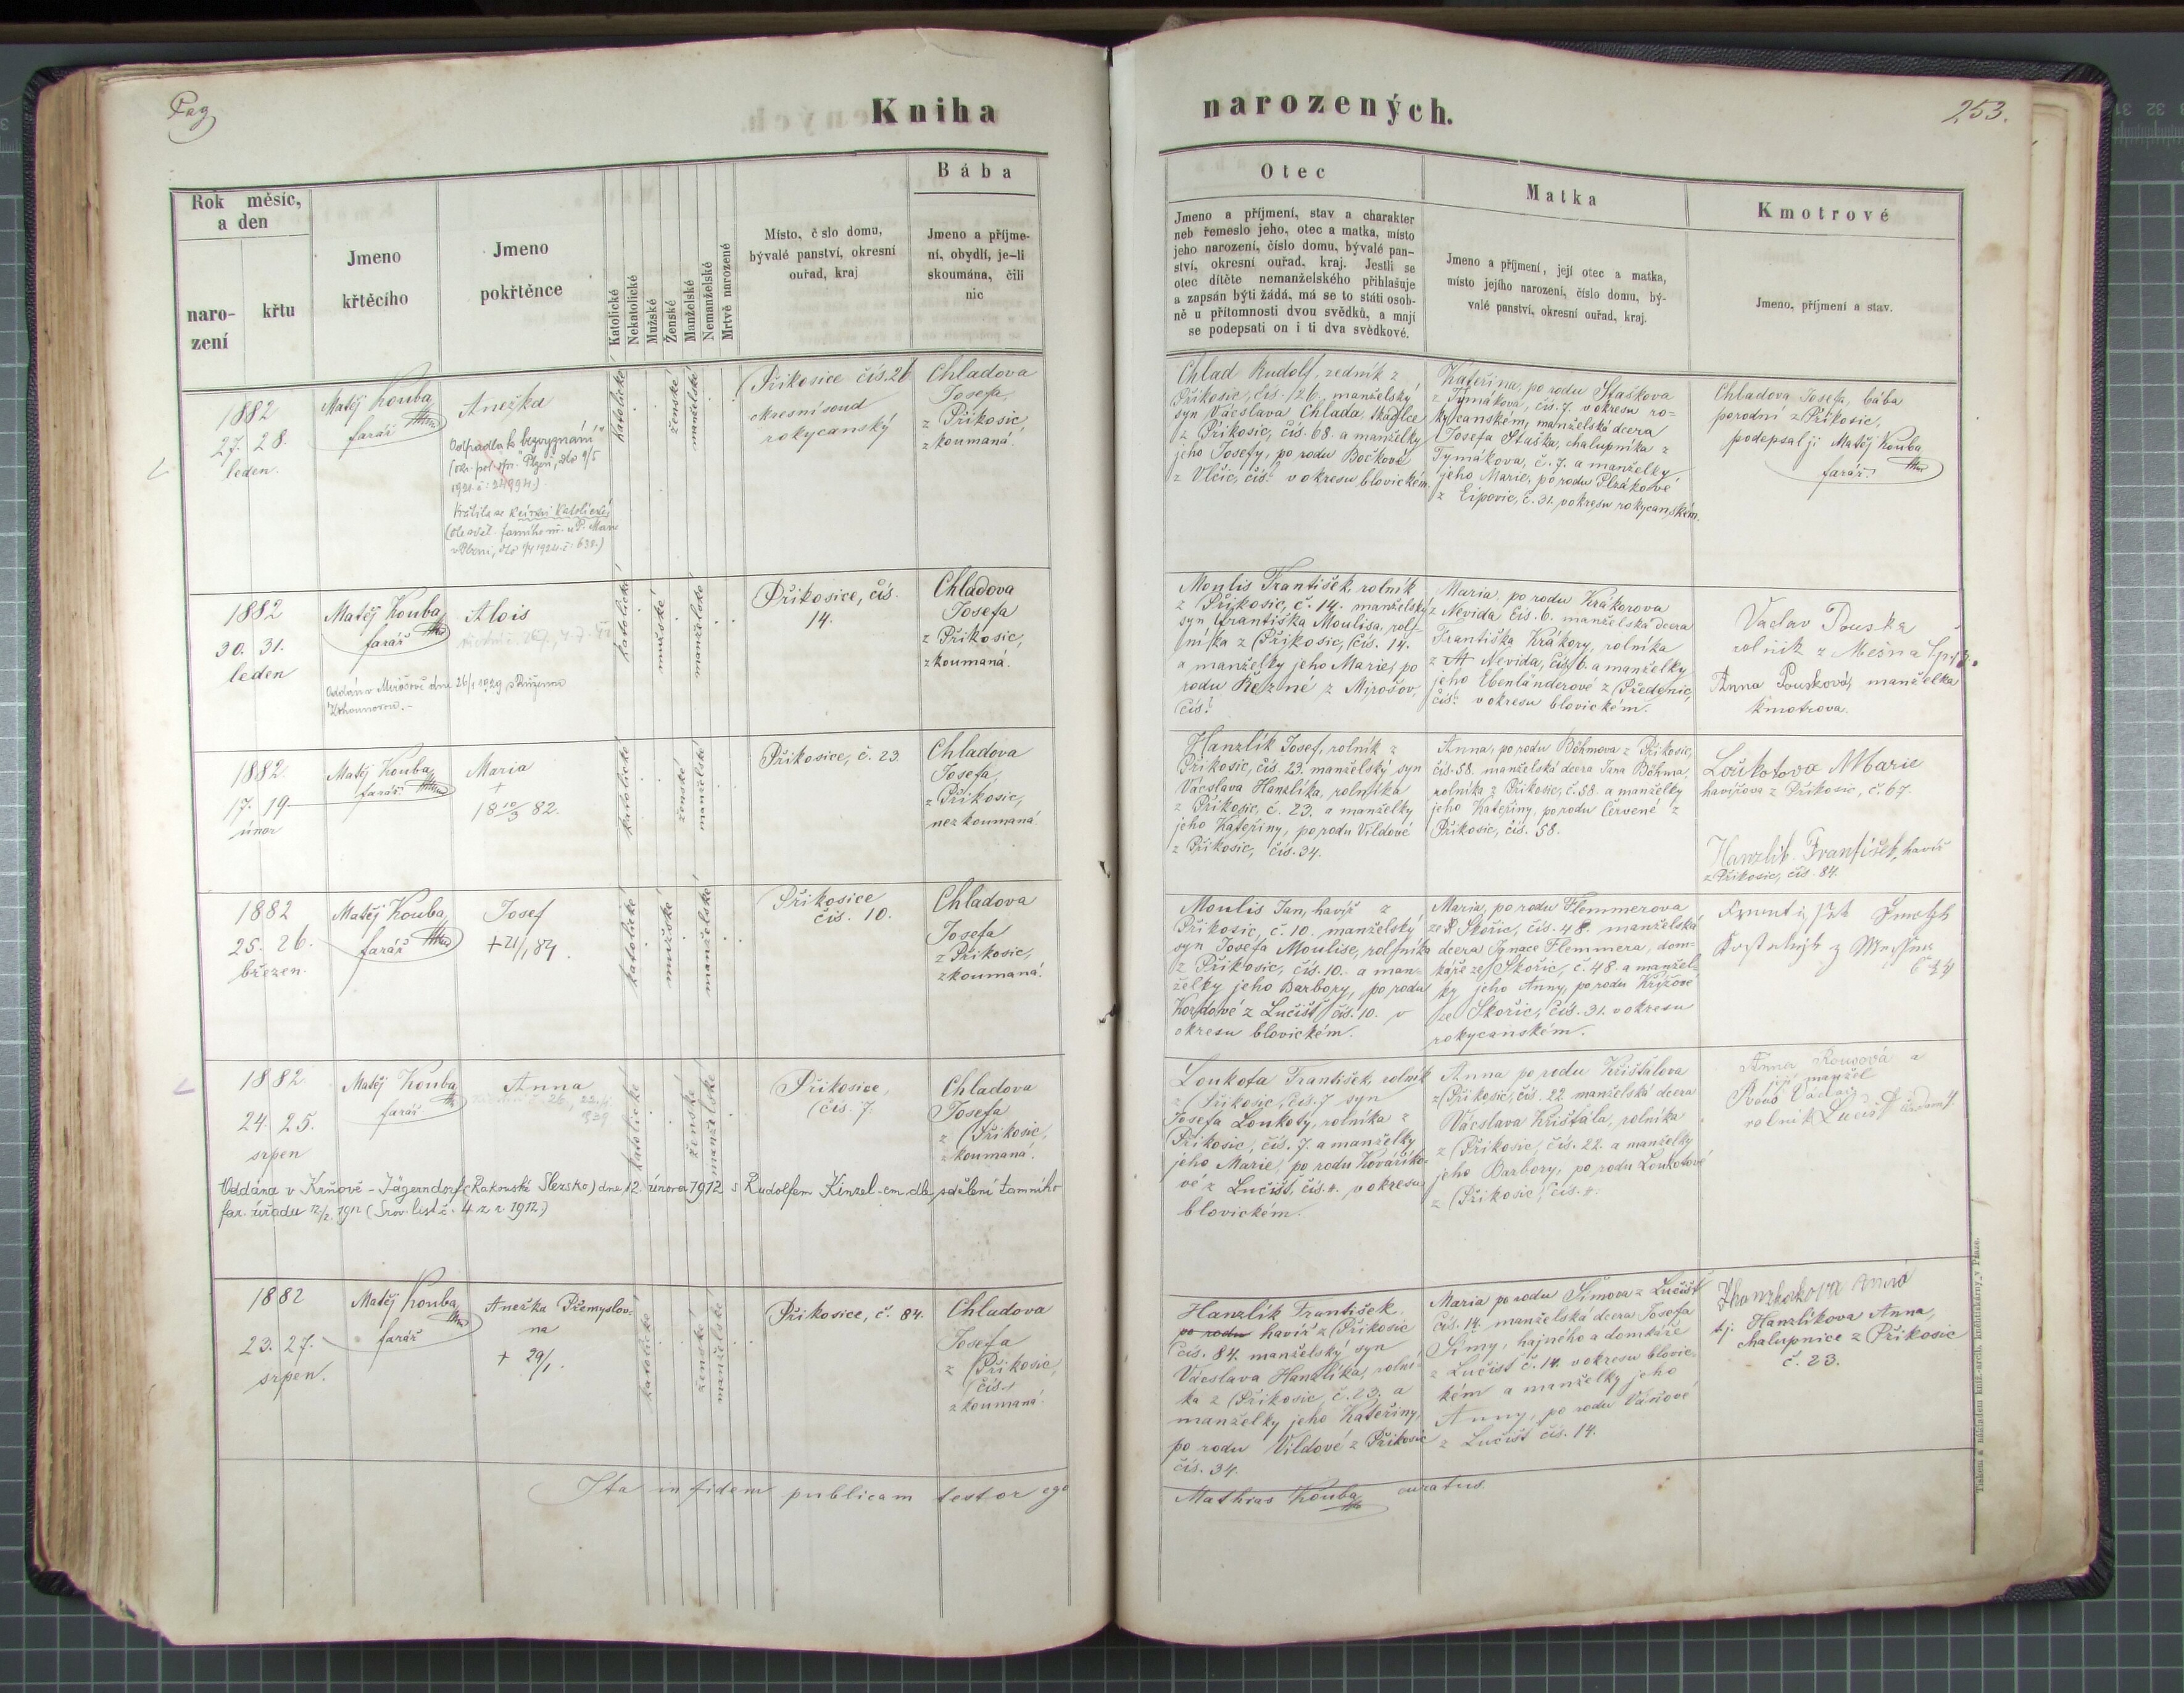 Pag
Kniha
narozených.
253.
Rok měsíc,
a den
naro-
zení
křtu
Jmeno
křtěcího
Jmeno
pokřtěnce
Katolické
Nekatolické
Mužské
Ženské
Manželské
Nemanželské
Mrtvě narozené
Místo, č slo domu,
bývalé panství, okresní
ouřad, kraj
Bába
Jmeno a příjme-
ní, obydlí, je-li
skoumána, čili
nic
Otec
Jmeno a příjmení, stav a charakter
neb řemeslo jeho, otec a matka, místo
jeho narození, číslo domu, bývalé pan-
ství, okresní ouřad, kraj. Jestli se
otec dítěte nemanželského přihlašuje
a zapsán býti žádá, má se to státi osob-
ně u přítomnosti dvou svědků, a mají
se podepsati on i ti dva svědkové.
Matka
Jmeno a příjmení, její otec a matka,
místo jejího narození, číslo domu, bý-
valé panství, okresní ouřad, kraj.
Kmotrové
Jmeno, příjmení a stav.
1882
27. 28.
leden.
Matěj Kouba,
farář
Anežka
Odpadla k "bezvyznání"
(okr. pol. spr. Plzeň, dto 9/5
1921. č: 24994.)
Vrátila se k církvi katolické
v Plzni, dto 9/4 1924. č: 638.)
katolické
ženské
manželské
Příkosice čís. 21
okresní soud
rokycanský
Chladova
Josefa,
z Příkosic,
zkoumaná.
Chlad Rudolf, zedník z
Příkosic, čís. 126. manželský
syn Václava Chlada, tkadlce
z Příkosic, čís. 68. a manželky
jeho Josefy, po rodu Bočkové
z Vlčic, čís. v okresu blovickém.
Kateřina, po rodu Staškova
z Tymákova, čís. 7. v okresu ro-
kycanském, manželská dcera
Josefa Staška, chalupníka z
Tymákova, č. 7. a manželky
jeho Marie, po rodu Plzákové
z Ejpovic, č. 31. v okresu rokycanském.
Chladova Josefa, bába
porodní z Příkosic,
podepsal ji Matěj Kouba,
farář.
1882
30. 31.
leden
Matěj Kouba,
farář
Alois
Oddán v Mirošově dne 26/1 1929 s Růženou
katolické
mužské
manželské
Příkosice, čís.
14.
Chladova
Josefa
z Příkosic,
zkoumaná.
Moulis František, rolník
z Příkosic, č. 14. manželský
syn Františka Moulisa, rol-
níka z Příkosic, čís. 14.
a manželky jeho Marie, po
rodu Řezné z Mirošov,
čís.
Maria, po rodu Krákorova
z Nevida, čís. 6. manželská dcera
Františka Krákory, rolníka
z Nevida, čís. 6. a manželky
jeho Ebenländerové z Předenic,
čís. v okresu blovickém.
Vaclav Pouska
rolník z Mešna
Anna Pousková, manželka
kmotrova.
1882.
17. 19.
únor
Matěj Kouba,
farář.
Maria
+
18 10/3 82.
katolické
ženské
manželské
Příkosice, č. 23.
Chladova
Josefa,
z Příkosic,
nezkoumaná.
Hanzlík Josef, rolník z
Příkosic, čís. 23. manželský syn
Václava Hanzlíka, rolníka
z Příkosic, č. 23. a manželky
jeho Kateřiny, po rodu Vildové
z Příkosic, čís. 34.
Anna, po rodu Böhmova z Příkosic,
čís. 58. manželská dcera Jana Böhma,
rolníka z Příkosic, č. 58. a manželky
jeho Kateřiny, po rodu Červené z
Příkosic, čís. 58.
Loukotova Marie
havířova z Příkosic, č. 67.
Hanzlík František, havíř
z Příkosic, čís. 84.
1882
25. 26.
březen.
Matěj Kouba,
farář
Josef
+ 21/1 84.
katolické
mužské
manželské
Příkosice
čís. 10.
Chladova
Josefa
z Příkosic,
zkoumaná.
Moulis Jan, havíř z
Příkosic, č. 10. manželský
syn Josefa Moulise, rolníka
z Příkosic, čís. 10. a man-
želky jeho Barbory, po rodu
Kordové z Lučišť čís. 10. v
okresu blovickém.
Maria, po rodu Flemmerova
ze Skořic, čís. 48. manželská
dcera Ignace Flemmera, dom-
káře ze Skořic, č. 48. a manžel-
ky jeho Anny, po rodu Křížové
ze Skořic, čís. 31. v okresu
rokycanském.
1882.
24. 25.
srpen
Matěj Kouba
farář
Anna
katolické
ženské
manželské
Příkosice,
čís. 7.
Chladova
Josefa
z Příkosic,
zkoumaná.
Oddána v Krňově - Jägerndorf (Rakouské Slezsko) dne 12. února 1912 s Rudolfem Kinzel-em dle sdělení tamního
far. úřadu 12/2 1912 (Srov. list č. 4 z r. 1912.)
Loukota František, rolník
z Příkosic, čís. 7 syn
Josefa Loukoty, rolníka z
Příkosic, čís. 7. a manželky
jeho Marie, po rodu Kováříko-
vé z Lučišť, čís. 8. v okresu
blovickém.
Anna po rodu Křišťálova
z Příkosic, čís. 22. manželská dcera
Václava Křišťála, rolníka
z Příkosic, čís. 22. a manželky
jeho Barbory, po rodu Loukotové
z Příkosic, čís. 8.
Anna Rousová a
její manžel
Rous Václav
rolník Lučišť
1882
23. 27.
srpen.
Matěj Kouba,
farář
Anežka Přemyslov-
na
+ 29/1.
katolické
ženské
manželské
Příkosice, č. 84.
Chladova
Josefa
z Příkosic,
čís.
zkoumaná.
Hanzlík František,
po rodu havíř z Příkosic
čís. 84. manželský syn
Václava Hanzlíka, rolní-
ka z Příkosic, č. 23. a
manželky jeho Kateřiny,
po rodu Vildové z Příkosic
čís. 34.
Maria po rodu Šimova z Lučišť
čís. 14. manželská dcera Josefa
Šimy, hajného a domkáře
z Lučišť č. 14. v okresu blovic-
kém a manželky jeho
Anny, po rodu Váňové
z Lučišť čís. 14.
tj. Hanzlíkova Anna,
chalupnice z Příkosic
č. 23.
Ita in fidem publicam testor ego
Mathias Kouba, curatus.
Tiskem a nákladem kníž. arcib. knihtiskárny v Praze.